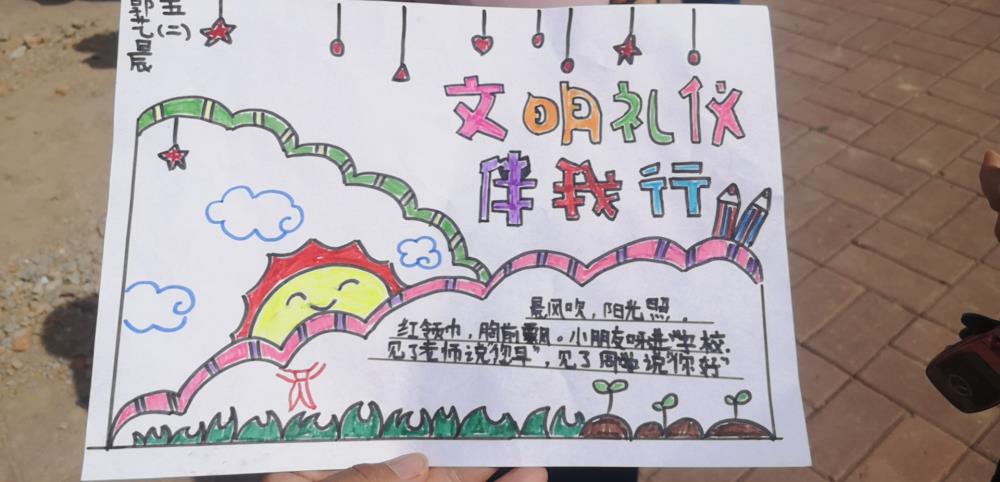 五(二)
郭艺晨
文明礼仪
伴我行
晨风吹，阳光照，
红领巾，胸前飘。小朋友呀进学校.
见了老师说“您早”，见了同学说“你好”